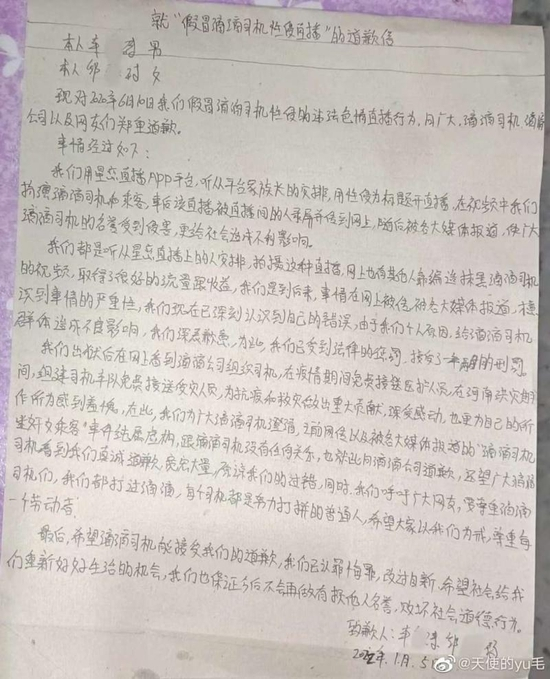 就“假冒滴滴司机性侵直播”的道歉信
本人车 男
本人邹 女
现对2020年6月10日我们假冒滴滴司机性侵的违法色情直播行为,向广大、滴滴司机 滴滴
公司以及网友们郑重道歉。
事情经过如下:
我们用星恋直播APP平台,听从平台家族长的安排,用性侵为标题开直播,在视频中我们
扮演滴滴司机和乘客,事后该直播被直播间的人录屏并传到网上,随后被各大媒体报道,使广大
滴滴司机的名誉受到侵害,更给社会造成不利影响。
我们都是听从星恋直播上的人安排,拍摄这种直播,网上也有其他人靠编造抹黑滴滴司机
的视频,取得了很好的流量跟收益,我们是到后来,事情在网上被传,被各大媒体报道,才意
识到事情的严重性,我们现在已深刻认识到自己的错误,由于我们个人原因,给滴滴司机
群体造成不良影响,我们深表歉意,为此,我们已受到法律的惩罚,接受了 的刑罚。
我们出狱后在网上看到滴滴公司组织司机,在疫情期间免费接送医护人员,在河南洪灾期
间,组建司机车队免费接送受灾人民,为抗疫和救灾做出重大贡献,深受感动,也更为自己的所
作所为感到羞愧,在此,我们为广大滴滴司机澄清,之前网传以及被各大媒体报道的“滴滴司机
性奸女乘客”事件纯属虚构,跟滴滴司机没有任何关系,也就此向滴滴公司道歉,还望广大滴滴
司机看到我们真诚道歉,宽宏大量,原谅我们的过错,同时,我们呼吁广大网友,要尊重滴滴
司机们,我们都打过滴滴,每个司机都是努力打拼的普通人,希望大家以我们为戒,尊重每
一个劳动者.
最后,希望滴滴司机能接受我们的道歉,我们已认罪悔罪,改过自新,希望社会给我
们重新好好生活的机会,我们也保证今后不会再做有损他人名誉,败坏社会道德行为。
致歉人:车 邹
2022年.1月.5日
@天使的yu毛